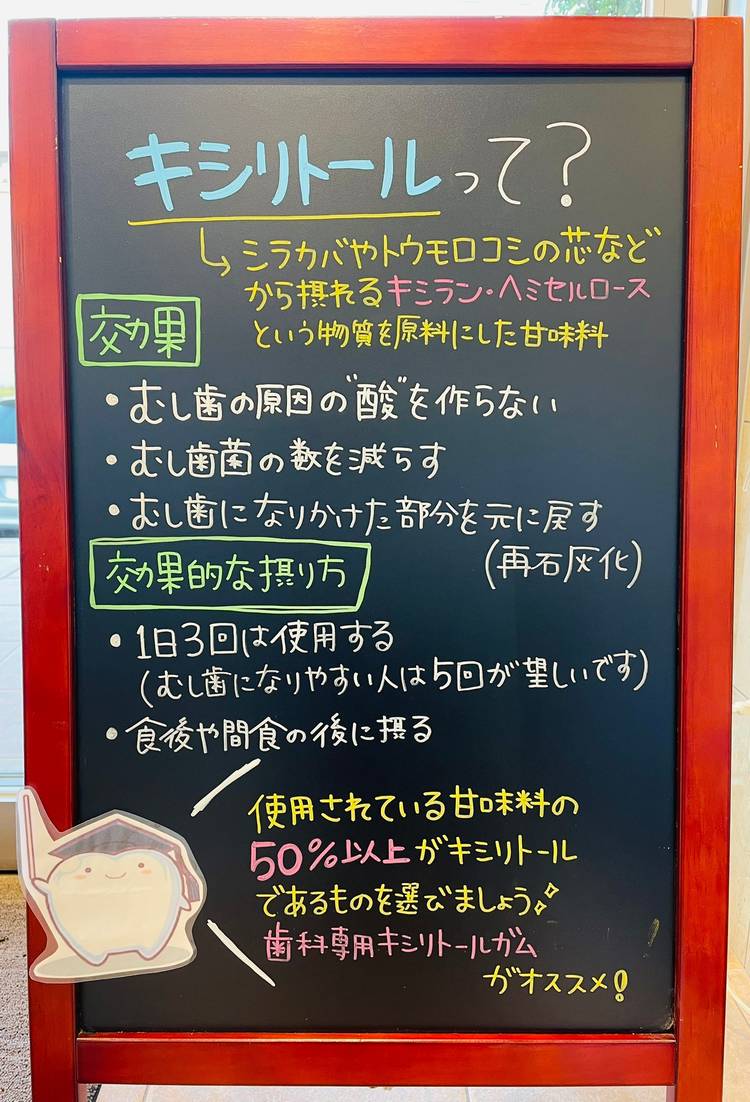 キシリトールって?
↳シラカバやトウモロコシの芯など
から摂れるキシラン・ヘミセルロース
という物質を原料にした甘味料
効果
・むし歯の原因の"酸"を作らない
・むし歯菌の数を減らす
・むし歯になりかけた部分を元に戻す
(再石灰化)
効果的な摂り方
・1日3回は使用する
(むし歯になりやすい人は5回が望しいです)
・食後や間食の後に摂る
使用されている甘味料の
50%以上がキシリトール
であるものを選びましょう
歯科専用キシリトールガム
がオススメ!